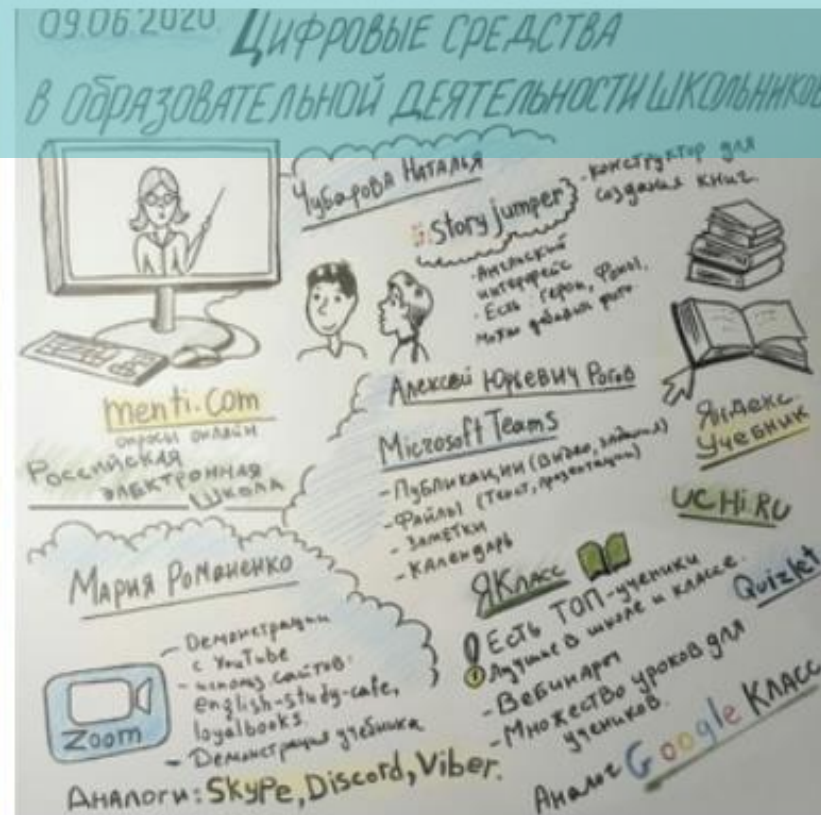 09.06.2020. ЦИФРОВЫЕ СРЕДСТВА
В ОБРАЗОВАТЕЛЬНОЙ ДЕЯТЕЛЬНОСТИ ШКОЛЬНИКОВ
Чубарова Наталья
story jumper
- конструктор для
создания книг.
- Английский
интерфейс
- Есть герои, фоны.
можно добавить фото
menti.com
опросы онлайн
Российская
электронная
школа
Алексей Юрьевич Рогов
Microsoft Teams
- Публикации (видео, задания)
- Файлы (текст, презентации)
- Заметки
- Календарь
Яндекс.
Учебник
UCHi.RU
Мария Романенко
Zoom
- Демонстрации
с YouTube
сайтов:
english-study-cafe,
loyalbooks.
- Демонстрация учебника
Аналоги: Skype, Discord, Viber.
ЯКласс
Есть ТОП-ученики
Лучшие в школе и классе.
- Вебинары
- Множество уроков для
учеников.
Quizlet
Аналог Google Класс